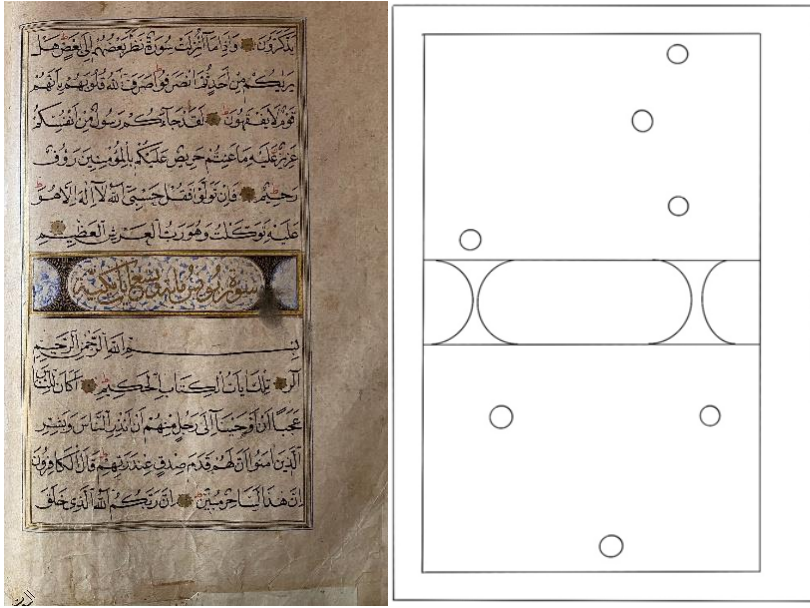 يَذَّكَّرُونَ وَإِذَا مَا أُنْزِلَتْ سُورَةٌ نَظَرَ بَعْضُهُمْ إِلَى بَعْضٍ هَلْ
يَرَيكُمْ مِنْ أَحَدٍ ثُمَّ انْصَرَفُوا صَرَفَ اللهُ قُلُوبَهُمْ بِأَنَّهُمْ
قَوْمٌ لَا يَفْقَهُونَ لَقَدْ جَاءَكُمْ رَسُولٌ مِنْ أَنْفُسِكُمْ
عَزِيزٌ عَلَيْهِ مَا عَنِتُّمْ حَرِيصٌ عَلَيْكُمْ بِالْمُؤْمِنِينَ رَؤُفٌ
رَحِيمٌ فَإِنْ تَوَلَّوْا فَقُلْ حَسْبِيَ اللهُ لَا إِلَهَ إِلَّا هُوَ
عَلَيْهِ تَوَكَّلْتُ وَهُوَ رَبُّ الْعَرْشِ الْعَظِيمِ
سورة يونس مائة وتسع آيات مكية
بِسْمِ اللهِ الرَّحْمَنِ الرَّحِيمِ
الر تِلْكَ آيَاتُ الْكِتَابِ الْحَكِيمِ أَكَانَ لِلنَّاسِ
عَجَبًا أَنْ أَوْحَيْنَا إِلَى رَجُلٍ مِنْهُمْ أَنْ أَنْذِرِ النَّاسَ وَبَشِّرِ
الَّذِينَ آمَنُوا أَنَّ لَهُمْ قَدَمَ صِدْقٍ عِنْدَ رَبِّهِمْ قَالَ الْكَافِرُونَ
إِنَّ هَذَا لَسَاحِرٌ مُبِينٌ إِنَّ رَبَّكُمُ اللهُ الَّذِي خَلَقَ